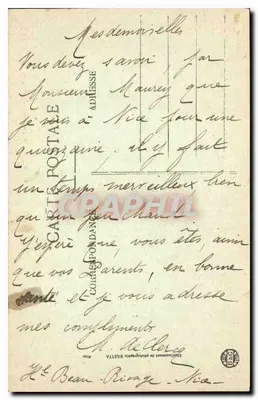 Mesdemoiselles
Vous devez savoir, par
Monsieur Maurey que
je suis à Nice pour une
quinzaine. il y fait
un temps merveilleux bien
qu'un peu chaud.
J'espère que vous êtes, ainsi
que vos Parents, en bonne
santé et je vous adresse
mes compliments
M. de Clercq
Hl Beau Rivage. Nice
CARTE POSTALE
ADRESSE
CORRESPONDANCE
Etablissement de photographie GILETTA Nice
CPA